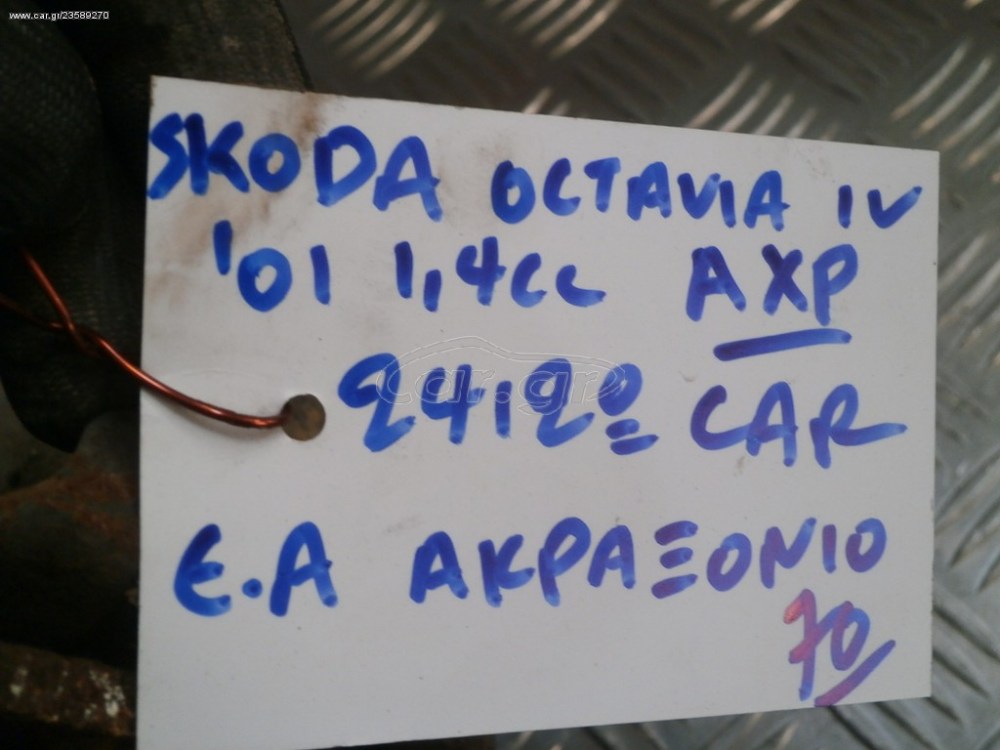 www.car.gr/23589270
SKODA OCTAVIA IV
'01 1,4cc AXP
24,20 CAR
Ε.Α ΑΚΡΑΞΟΝΙΟ
70
car.gr